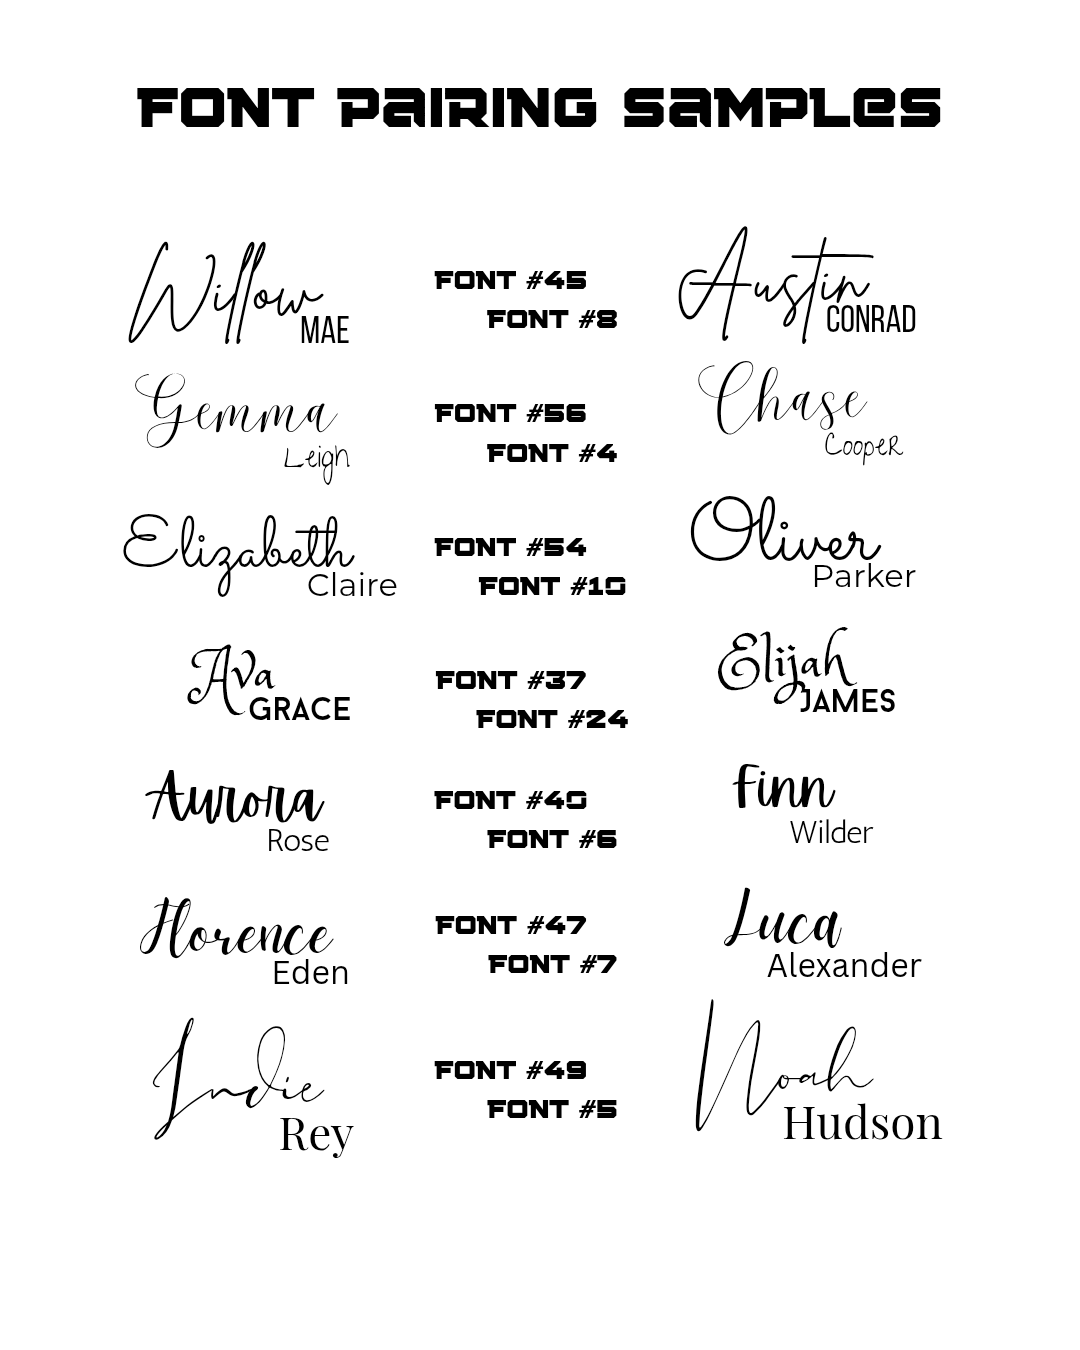 FONT PAIRING SAMPLES
Willow
MAE
FONT #45
FONT #8
Austin
CONRAD
Gemma
Leigh
FONT #56
FONT #4
Chase
Cooper
Elizabeth
Claire
FONT #54
FONT #10
Oliver
Parker
Ava
GRACE
FONT #37
FONT #24
Elijah
JAMES
Aurora
Rose
FONT #40
FONT #6
Finn
Wilder
Florence
Eden
FONT #47
FONT #7
Luca
Alexander
Indie
Rey
FONT #49
FONT #5
Noah
Hudson